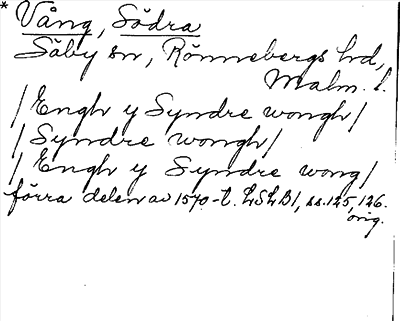 * Vång, Södra
Säby sn, Rönnebergs hd,
Malm. l.
/Engh y Syndre wongh/
/Syndre wongh/
/Engh y Syndre wong/
förra delen av 1570-t. LSLB1, ss. 125, 126.
orig.